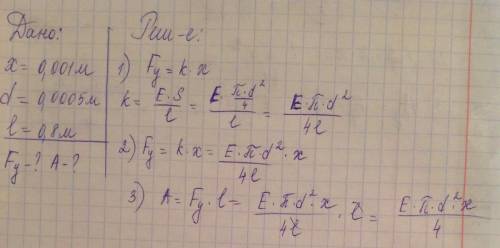 Дано:
x = 0,001 м
d = 0,0005 м
l = 0,8 м
Fy - ? A - ?
Реш-е:
1) Fy = k · x
k = E · S / l = E · П · d² / 4 / l = E · П · d² / 4l
2) Fy = k · x = E · П · d² / 4l · x
3) A = Fy · l = E · П · d² · x / 4l · l = E · П · d² · x / 4